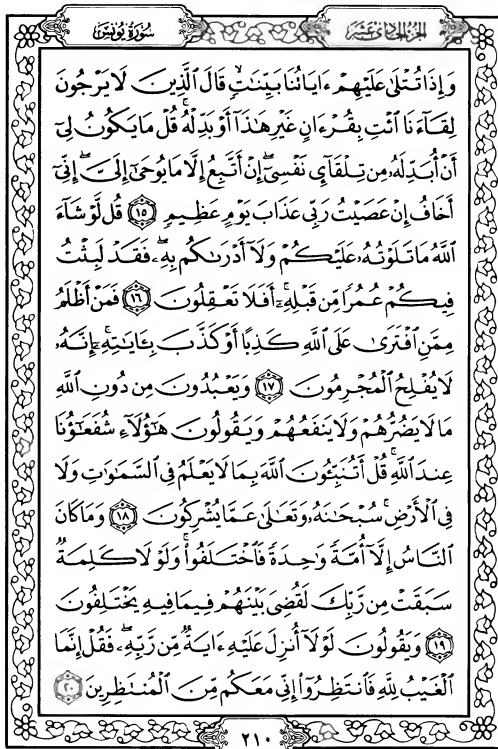 سُورَةُ يُونُسَ الجُزْءُ الحَادِي عَشَرَ
وَإِذَا تُتْلَىٰ عَلَيْهِمْ ءَايَاتُنَا بَيِّنَٰتٍ قَالَ ٱلَّذِينَ لَا يَرْجُونَ
لِقَآءَنَا ٱئْتِ بِقُرْءَانٍ غَيْرِ هَٰذَآ أَوْ بَدِّلْهُ ۚ قُلْ مَا يَكُونُ لِىٓ
أَنْ أُبَدِّلَهُۥ مِن تِلْقَآئِ نَفْسِىٓ ۖ إِنْ أَتَّبِعُ إِلَّا مَا يُوحَىٰٓ إِلَىَّ ۖ إِنِّىٓ
أَخَافُ إِنْ عَصَيْتُ رَبِّى عَذَابَ يَوْمٍ عَظِيمٍ ١٥ قُل لَّوْ شَآءَ
ٱللَّهُ مَا تَلَوْتُهُۥ عَلَيْكُمْ وَلَآ أَدْرَىٰكُم بِهِۦ ۖ فَقَدْ لَبِثْتُ
فِيكُمْ عُمُرًا مِّن قَبْلِهِۦٓ ۚ أَفَلَا تَعْقِلُونَ ١٦ فَمَنْ أَظْلَمُ
مِمَّنِ ٱفْتَرَىٰ عَلَى ٱللَّهِ كَذِبًا أَوْ كَذَّبَ بِـَٔايَٰتِهِۦٓ ۚ إِنَّهُۥ
لَا يُفْلِحُ ٱلْمُجْرِمُونَ ١٧ وَيَعْبُدُونَ مِن دُونِ ٱللَّهِ
مَا لَا يَضُرُّهُمْ وَلَا يَنفَعُهُمْ وَيَقُولُونَ هَٰٓؤُلَآءِ شُفَعَٰٓؤُنَا
عِندَ ٱللَّهِ ۚ قُلْ أَتُنَبِّـُٔونَ ٱللَّهَ بِمَا لَا يَعْلَمُ فِى ٱلسَّمَٰوَٰتِ وَلَا
فِى ٱلْأَرْضِ ۚ سُبْحَٰنَهُۥ وَتَعَٰلَىٰ عَمَّا يُشْرِكُونَ ١٨ وَمَا كَانَ
ٱلنَّاسُ إِلَّآ أُمَّةً وَٰحِدَةً فَٱخْتَلَفُوا۟ ۚ وَلَوْلَا كَلِمَةٌ
سَبَقَتْ مِن رَّبِّكَ لَقُضِىَ بَيْنَهُمْ فِيمَا فِيهِ يَخْتَلِفُونَ
١٩ وَيَقُولُونَ لَوْلَآ أُنزِلَ عَلَيْهِ ءَايَةٌ مِّن رَّبِّهِۦ ۖ فَقُلْ إِنَّمَا
ٱلْغَيْبُ لِلَّهِ فَٱنتَظِرُوٓا۟ إِنِّى مَعَكُم مِّنَ ٱلْمُنتَظِرِينَ ٢٠
٢١٠